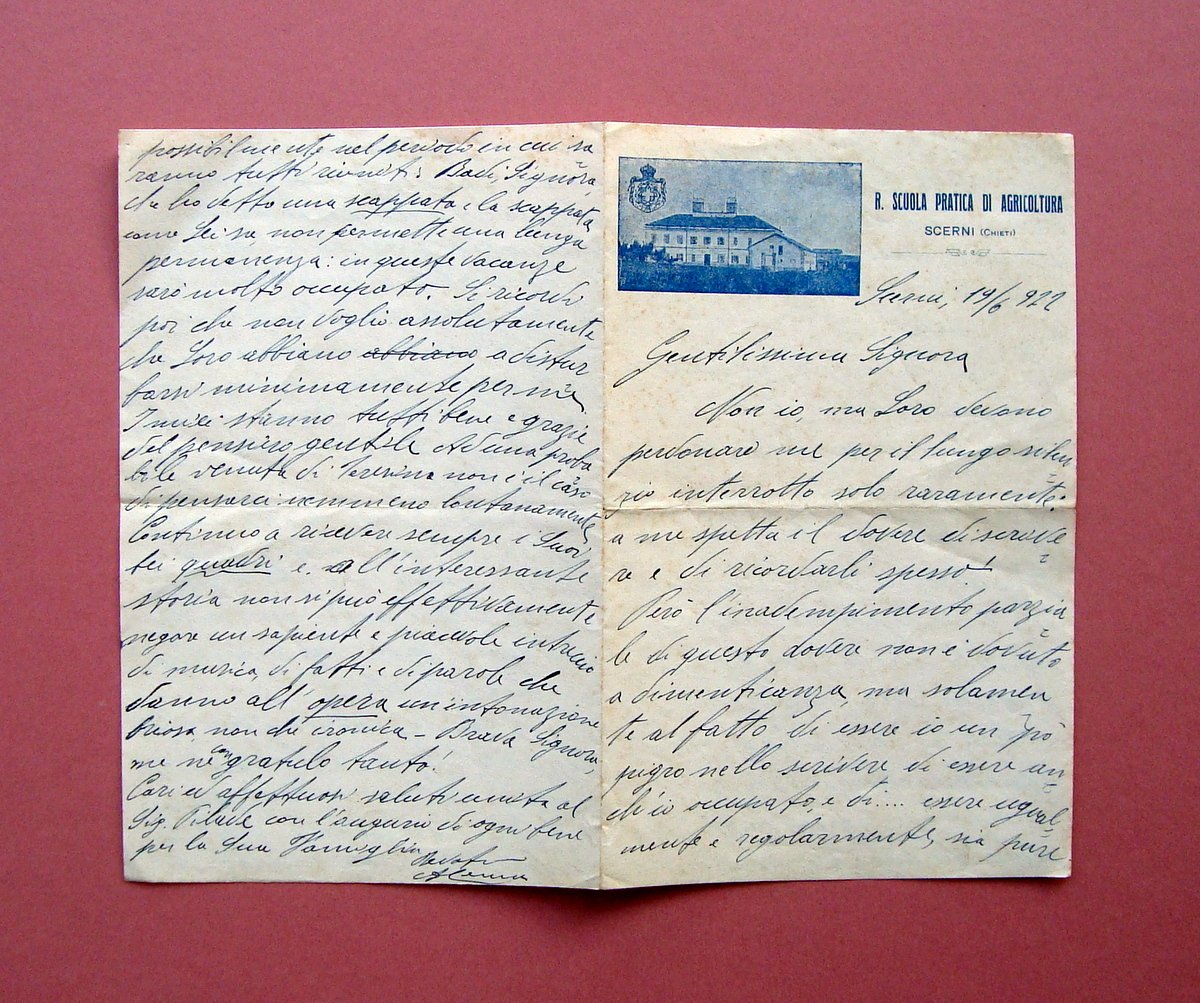 R. SCUOLA PRATICA DI AGRICOLTURA
SCERNI (CHIETI)
Scerni, 19/6 922
Gentilissima Signora
Non io, ma Loro devono
perdonare me per il lungo silen
zio interrotto solo raramente:
a me spetta il dovere di scrive
re e di ricordarli spesso!
Però l'inadempimento parzia
le di questo dovere non è dovuto
a dimenticanza, ma solamen
te al fatto di essere io un pò
pigro nello scrivere di essere an
ch'io occupato, e di.... essere ugual
mente e regolarmente, sia pure
possibilmente nel periodo in cui sa
ranno tutti riuniti: Badi, Signora
che ho detto una scappata e la scappata
come Lei sa non permette una lunga
permanenza: in queste vacanze
sarò molto occupato. Si ricordi
poi che non voglio assolutamente
che Loro abbiano abbiano a distur
barsi minimamente per me.
I miei stanno tutti bene e grazie
del pensiero gentile. Ad una proba
bile venuta di non è il caso
di pensarci nemmeno lontanamente,
Continuo a ridere sempre i Suoi
bei quadri e all'interessante
storia non si può effettivamente
negare un sapiente e piacevole intreccio
di musica, di fatti e di parole che
danno all'opera un'intonazione
briosa non che ironica – Brava Signora,
me ne congratulo tanto!
Cari ed affettuosi saluti unita al
Sig. Pilade con l'augurio di ogni bene
per la Sua Famiglia